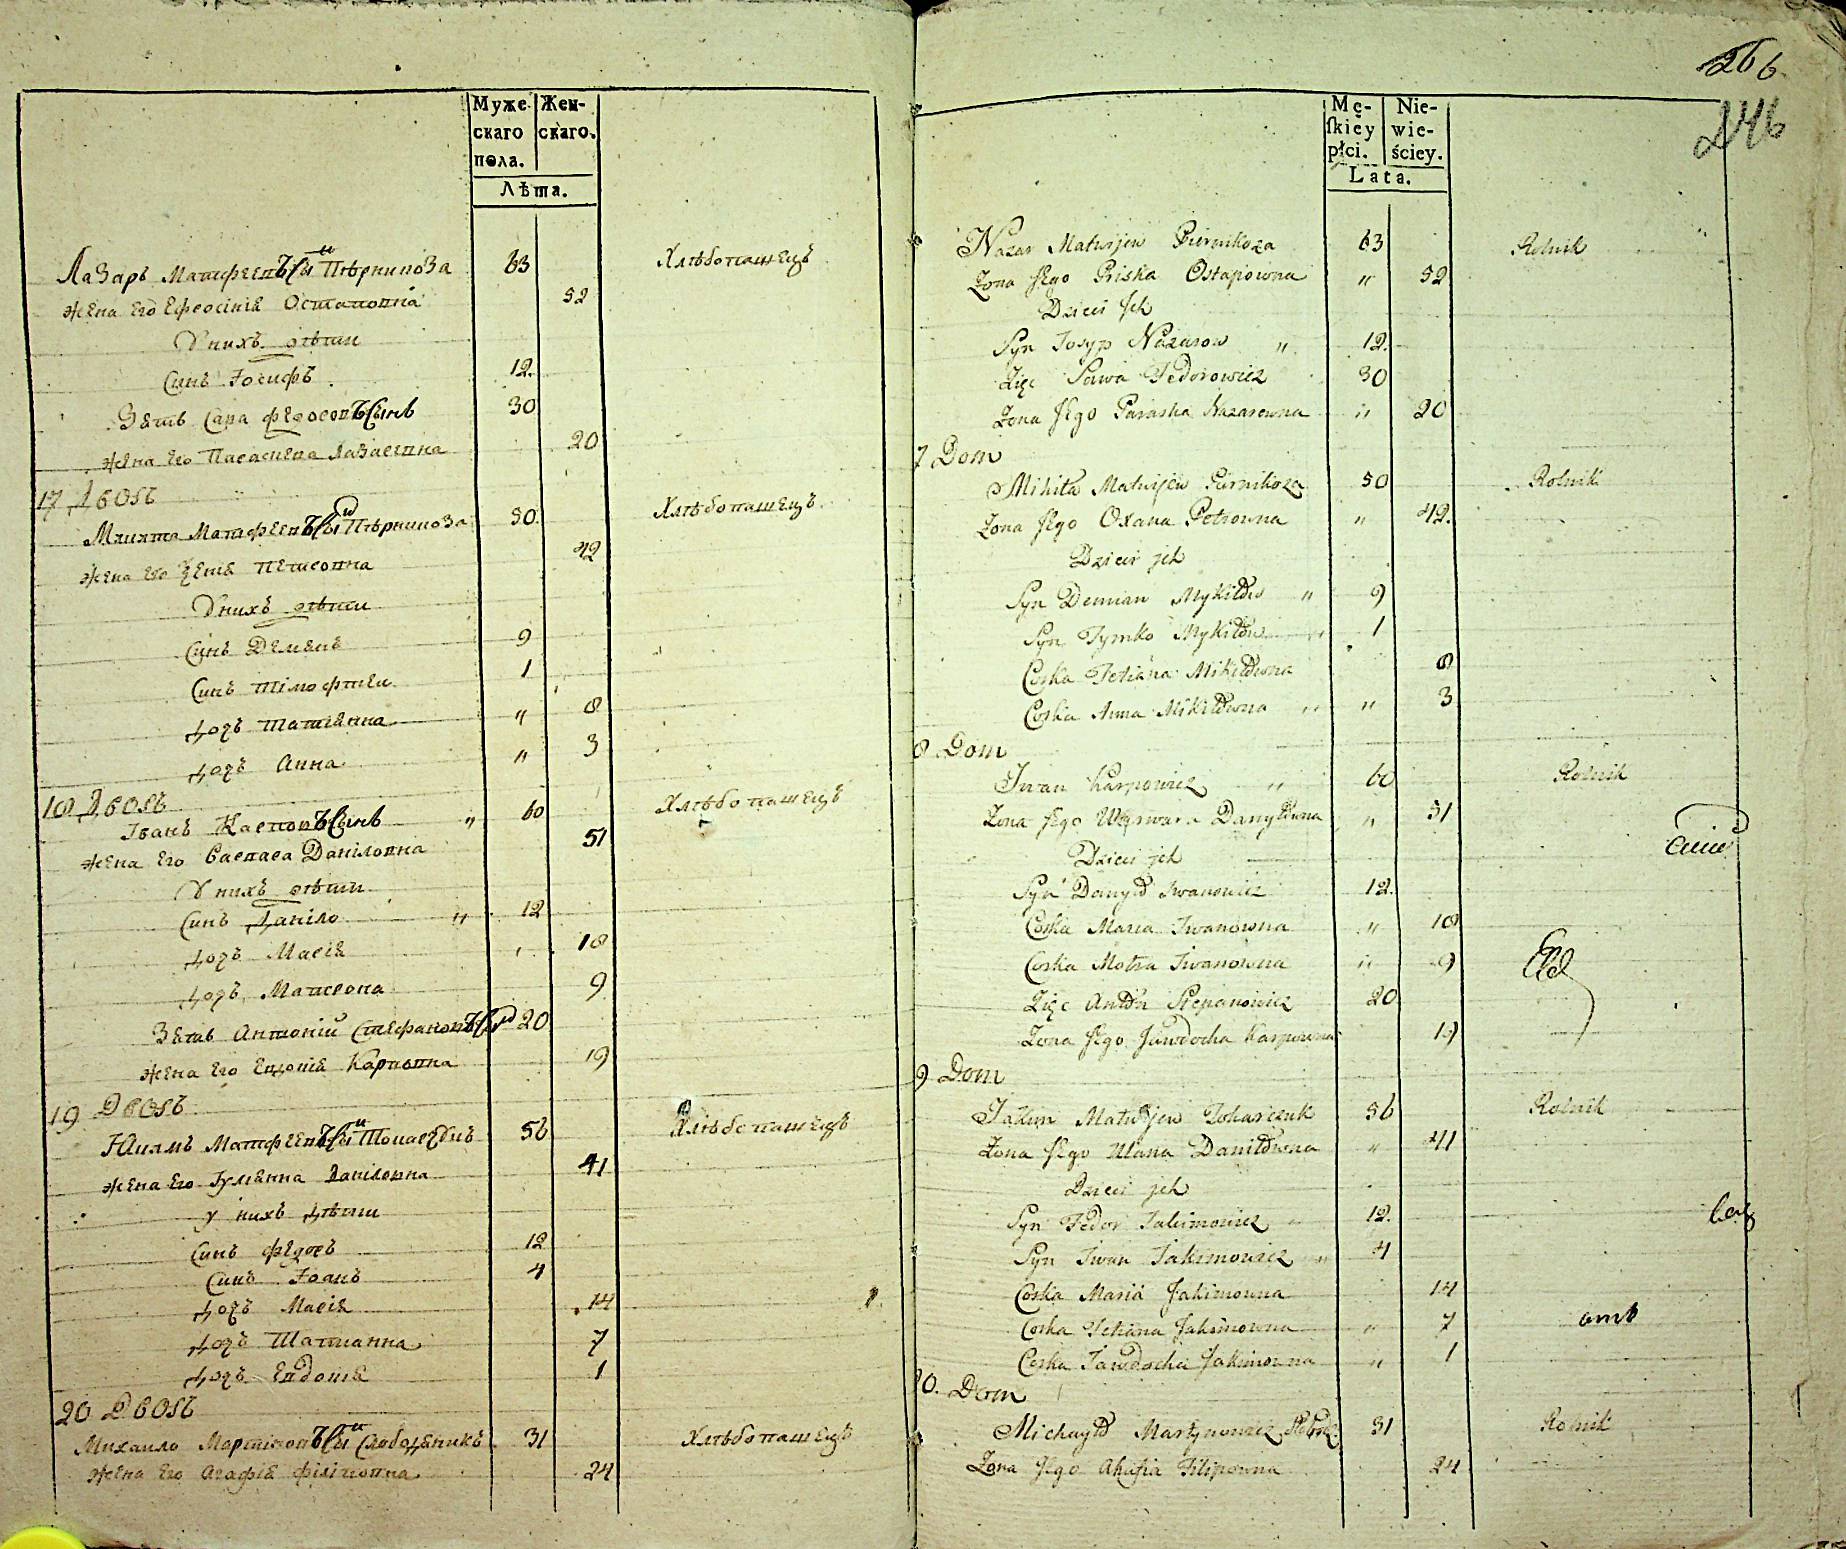 Муже
скаго
пола.
Жен-
скаго.
Лѣта.
Лазарь Матфеевъ Сы и Пѣрникоза 63 Хлѣбопашецъ
жена его Ефросініа Остаповна 52
У нихъ дѣти
Синъ Іосифъ 12.
Зять Сава Федоровъ Сынъ 30
жена его Параскева Лазаревна 20
17 Дворъ
Микита Матфеевъ Сы и Пѣрникоза 50. Хлѣбопашецъ.
жена его Ксенія Петровна 42
У нихъ дѣти
Синъ Демянъ 9
Синъ Тімофтей 1
дочь Татіанна " 8
дочь Анна " 3
18 Дворъ
Іванъ Карповъ Сынъ " 60 Хлѣбопашецъ
жена его Варвара Даніловна 51
У нихъ дѣти
Синъ Даніло " 12
дочь Марія 18
дочь Матрона 9
Зять Антоній Стефановъ 20
жена его Евдокія Карповна 19
19 Дворъ
Якимъ Матфеевъ Сы и Токарчукъ 56 Хлѣбопашецъ
жена его Іуліанна Даніловна 41
у нихъ дѣти
Синъ Федоръ 12
Синъ Іоанъ 4
дочь Марія 14
дочь Татіанна 7
дочь Евдокія 1
20 Дворъ
Михаило Мартіновъ Сы и Слободяникъ 31 Хлѣбопашецъ
жена его Агафія Філіповна 24
266
246
Mę-
ſkiey
płci.
Nie-
wie-
ściey.
Lata.
Nazar Matwijew Piernikoza 63 Rolnik
Żona Jego Priska Ostapowna " 52
Dzieci Jch
Syn Josyp Nazarow " 12.
Zięc Sawa Fedorowicz 30
Żona Jego Paraska Nazarewna " 20
7 Dom
Mikita Matwijew Piernikoza 50 Rolnik
Żona Jego Oxana Petrowna " 42.
Dzieci jch
Syn Demian Mykitów " 9
Syn Tymko Mykitów " 1
Corka Tetiana Mikitówna 8
Corka Anna Mikitówna " " 3
8 Dom
Jwan Karpowicz " 60 Rolnik
Żona Jego Warwara Danyłówna " 51
Dzieci jch
Syn Danyło Jwanowicz 12.
Corka Maria Jwanowna " 18
Corka Motra Jwanowna " 9
Zięc Antón Stepanowicz 20
Żona Jego Jawdocha Karpowna 19
9 Dom
Jakim Matwijew Tokarczuk 56 Rolnik
Żona Jego Ulana Daniłówna " 41
Dzieci jch
Syn Fedor Jakimowicz " 12.
Syn Jwan Jakimowicz " 4
Corka Maria Jakimowna 14
Corka Tetiana Jakimowna " 7
Corka Jawdocha Jakimowna " 1
0. Dom
Michayło Martynowicz 31 Rolnik
Żona Jego Ahafia Filipowna 24